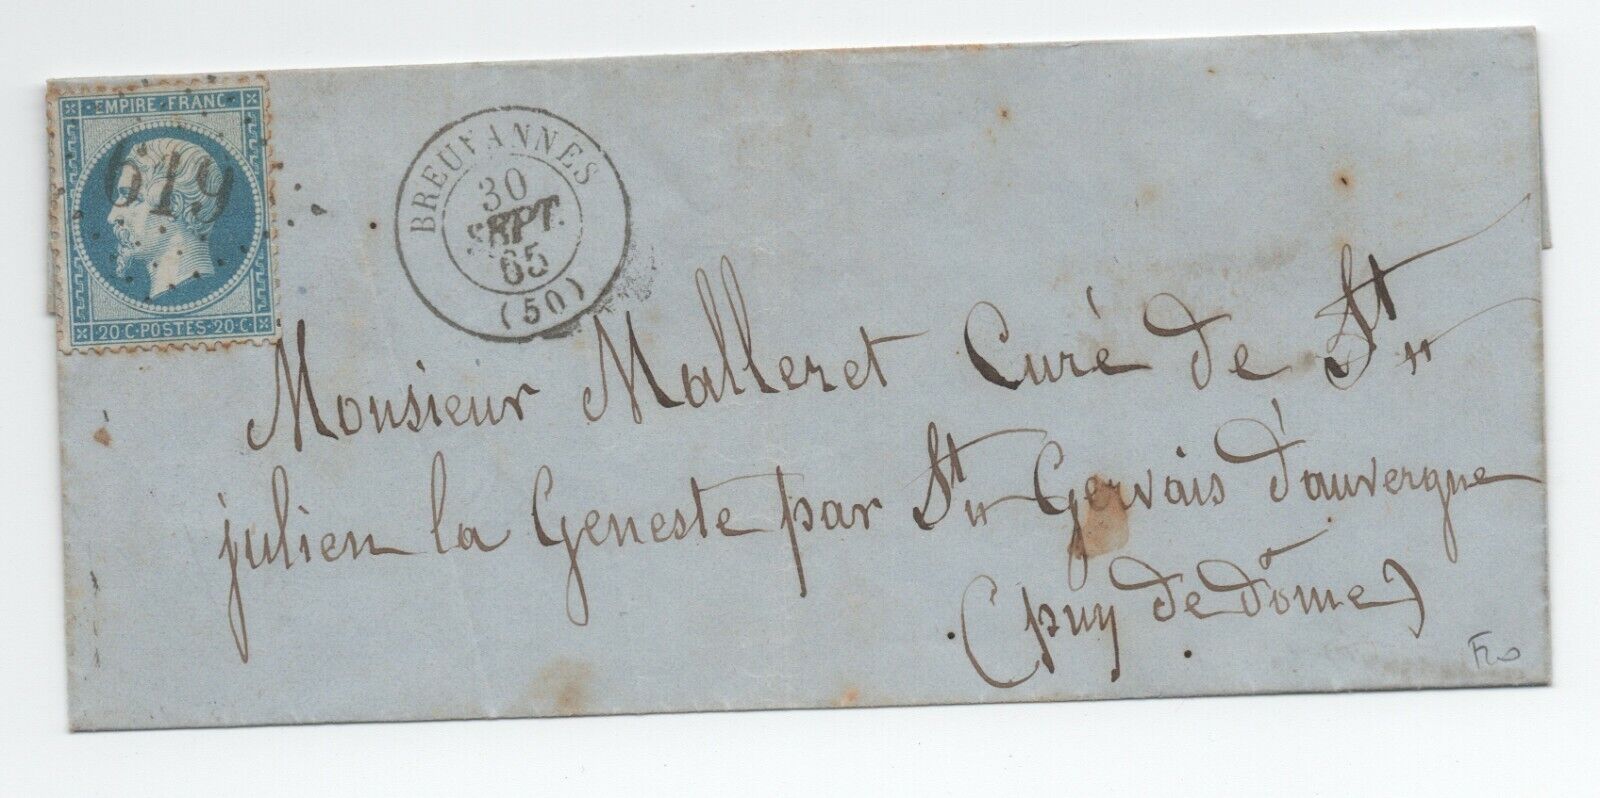 EMPIRE FRANC
619
20 C POSTES 20 C
BREUVANNES
30
SEPT.
65
(50)
Monsieur Malleret Curé de St
julien la Geneste par St Gervais d'auvergne
(puy de dôme)